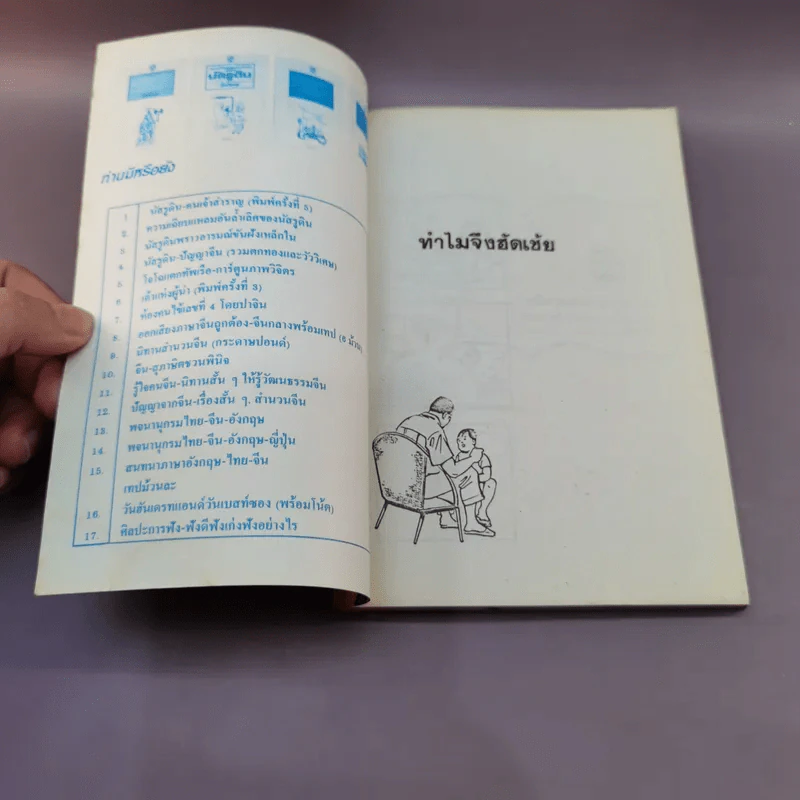 นัสรูดิน
ท่านมีหรือยัง
1. นัสรูดิน-คนเจ้าสำราญ (พิมพ์ครั้งที่ 5)
2. ความเฉียบแหลมอันล้ำเลิศของนัสรูดิน
3. นัสรูดินพราวอารมณ์ขันฝังเหล็กใน
4. นัสรูดิน-ปัญญาจีน (รวมตกทองและวัววิเศษ)
5. โจโฉแตกทัพเรือ-การ์ตูนภาพวิจิตร
6. เต๋าแห่งผู้นำ (พิมพ์ครั้งที่ 3)
7. ห้องคนไข้เลขที่ 4 โดยปาจิน
8. ออกเสียงภาษาจีนถูกต้อง-จีนกลางพร้อมเทป (6 ม้วน)
9. นิทานสำนวนจีน (กระดาษปอนด์)
10. จีน-สุภาษิตชวนพินิจ
11. รู้ใจคนจีน-นิทานสั้น ๆ ให้รู้วัฒนธรรมจีน
12. ปัญญาจากจีน-เรื่องสั้น ๆ. สำนวนจีน
13. พจนานุกรมไทย-จีน-อังกฤษ
14. พจนานุกรมไทย-จีน-อังกฤษ-ญี่ปุ่น
15. สนทนาภาษาอังกฤษ-ไทย-จีน
เทปม้วนละ
16. วันฮันเดรทแอนด์วันเบสท์ซอง (พร้อมโน้ต)
17. ศิลปะการฟัง-ฟังดีฟังเก่งฟังอย่างไร
ทำไมจึงฮัดเช้ย